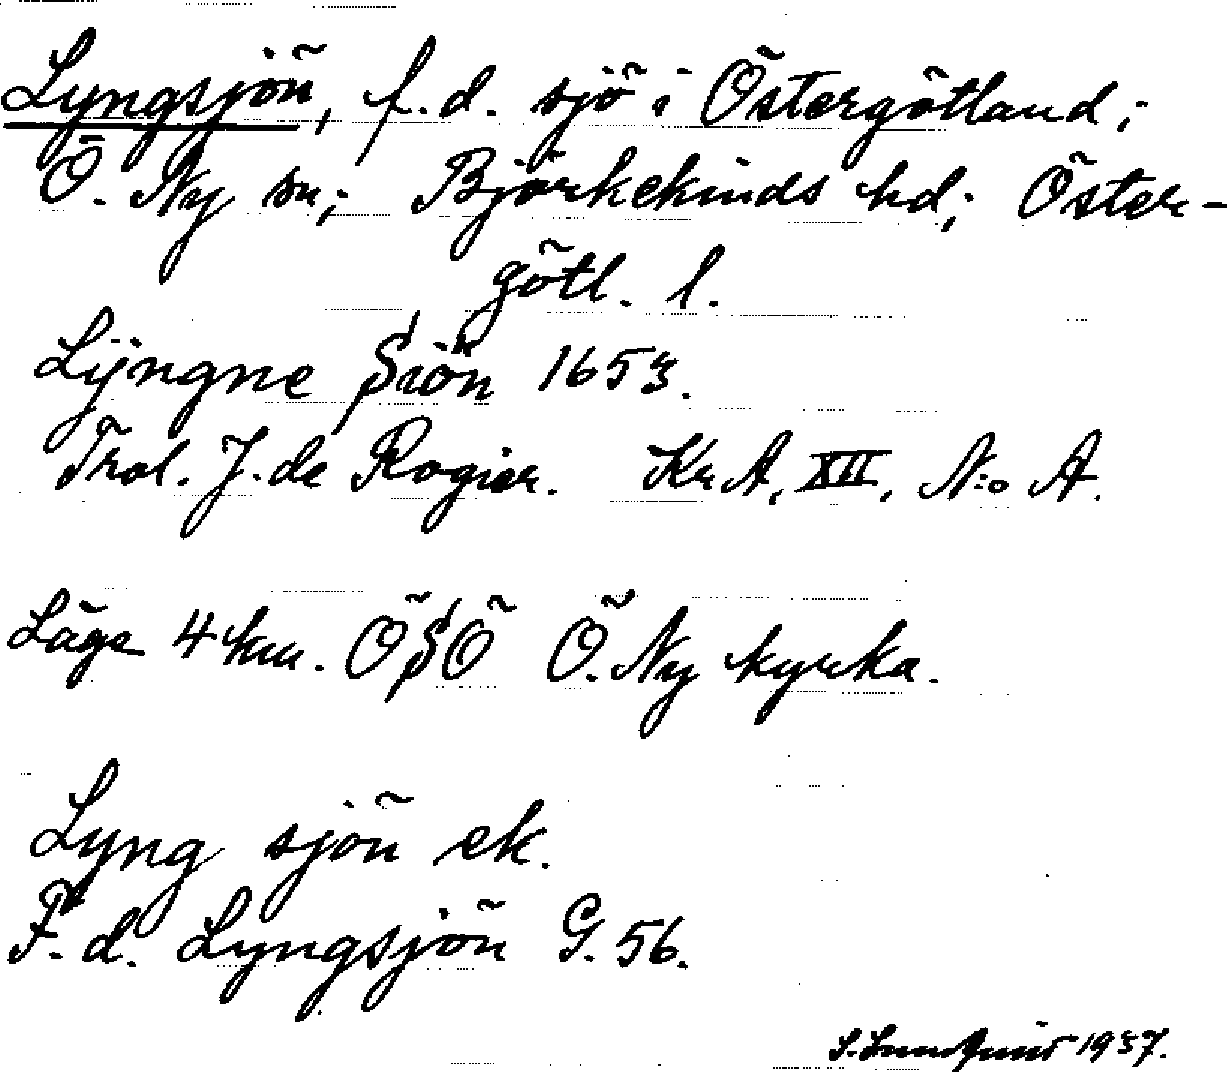 Lyngsjön, f. d. sjö i Östergötland;
Ö. Ny sn; Björkekinds hd; Öster-
götl. l.
Lÿngne Siön 1653.
Trol. J. de Rogier. KrA, XII, N:o A.
Läge 4 km. ÖSÖ Ö. Ny kyrka.
Lyng sjön ek.
F. d. Lyngsjön G. 56.
S. Lundquist 1937.